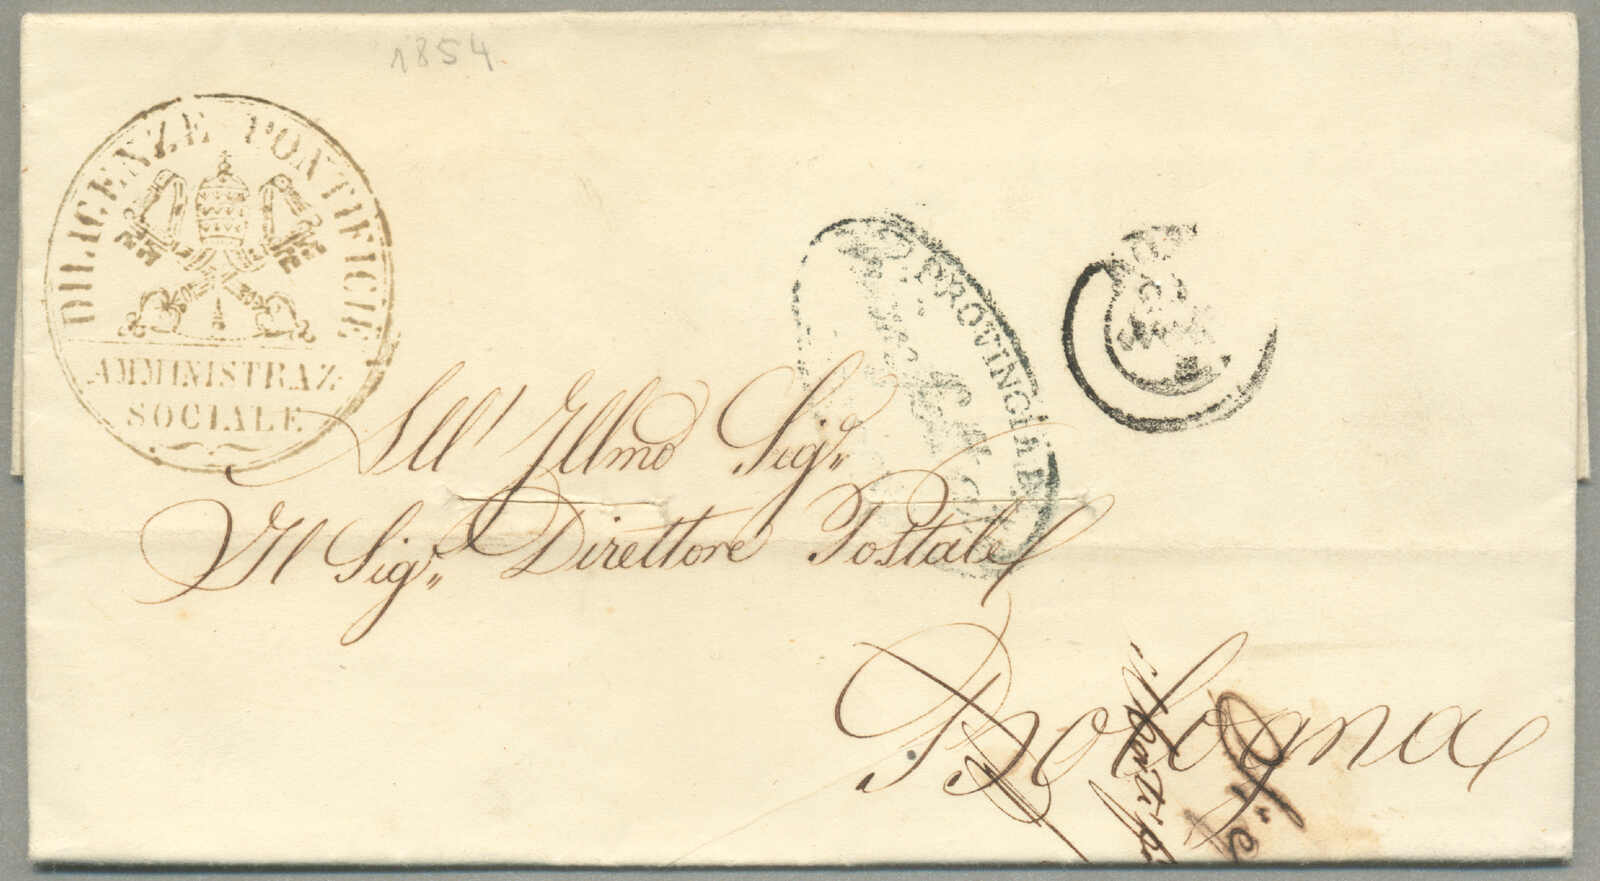 1854
DILIGENZE PONTIFICIE
AMMINISTRAZ.
SOCIALE
PROVINCIALE
All' Illmo Sigr
Il Sigr Direttore Postale
Bologna